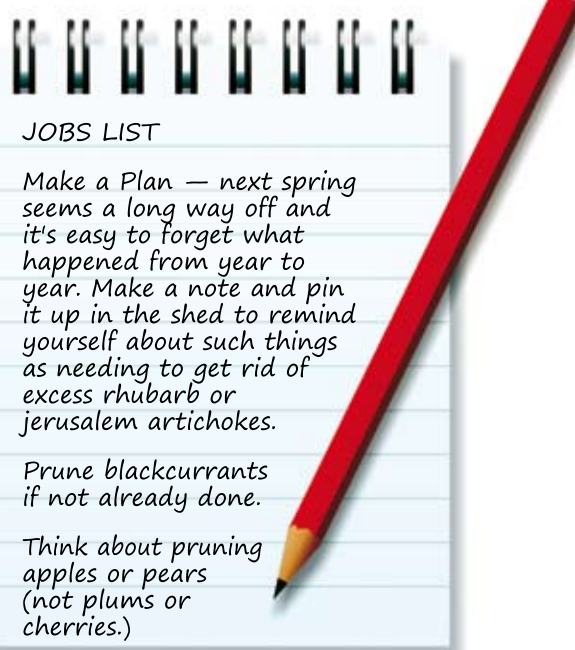 JOBS LIST
Make a Plan — next spring
seems a long way off and
it's easy to forget what
happened from year to
year. Make a note and pin
it up in the shed to remind
yourself about such things
as needing to get rid of
excess rhubarb or
jerusalem artichokes.
Prune blackcurrants
if not already done.
Think about pruning
apples or pears
(not plums or
cherries.)